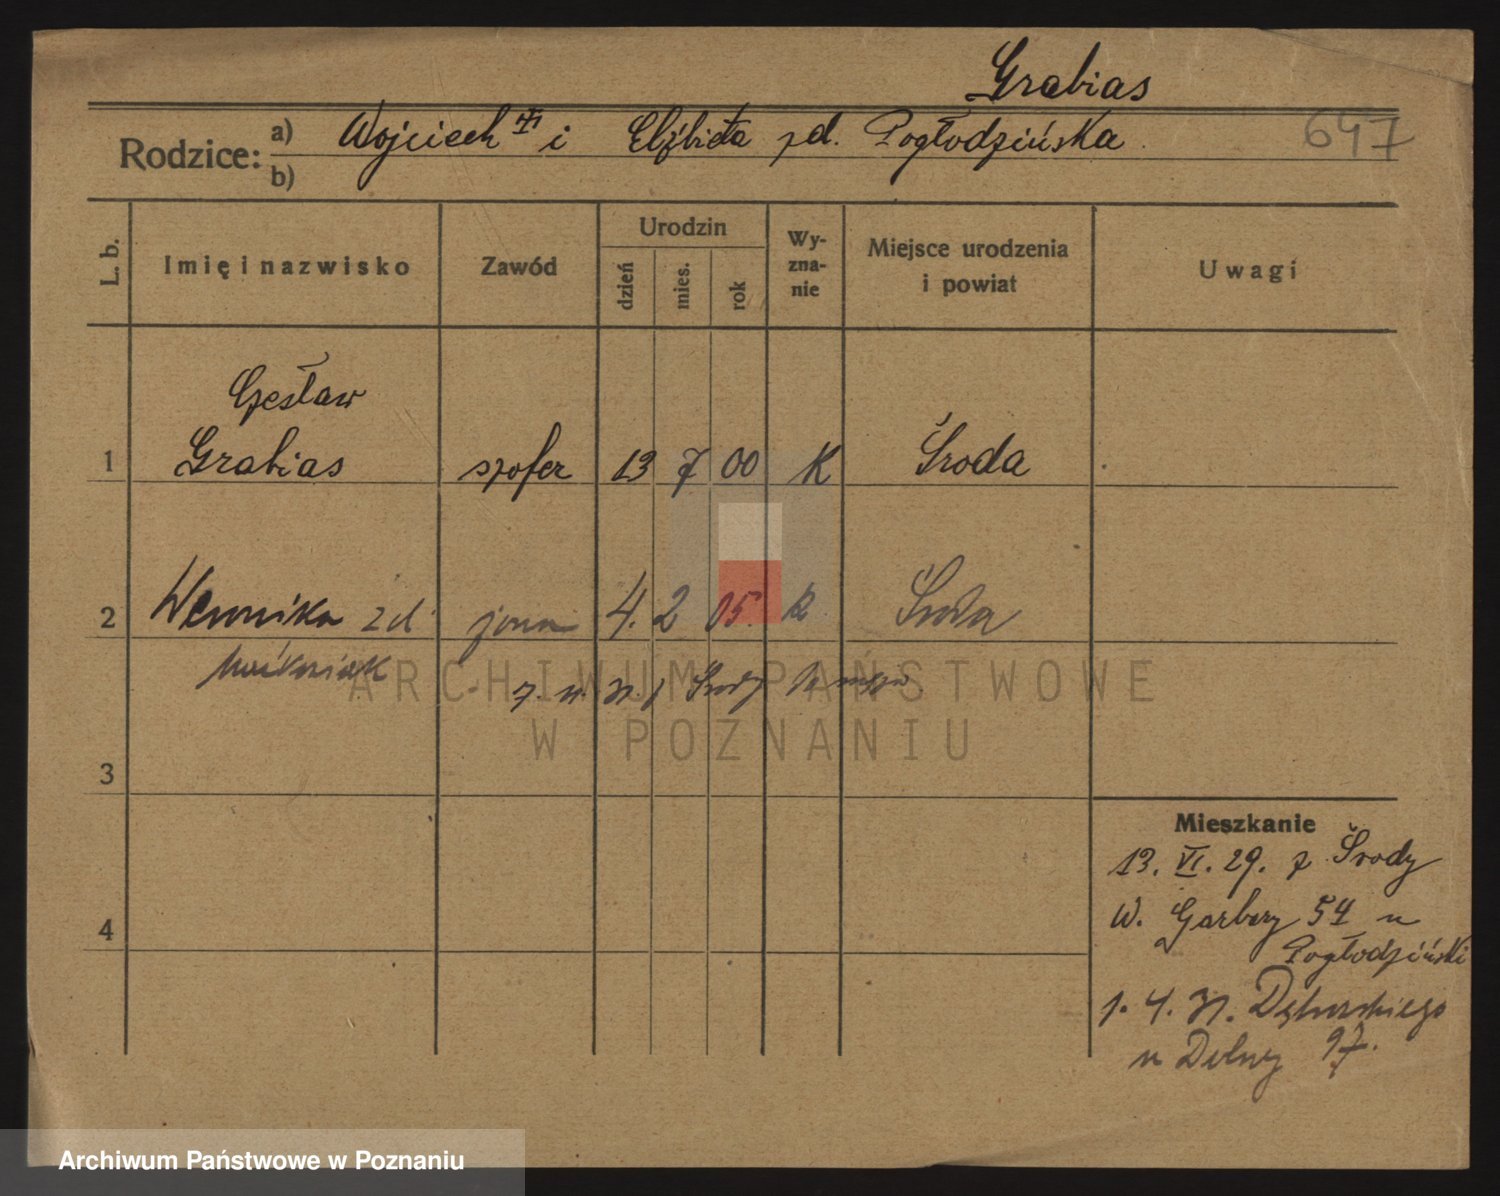 Grabias
Rodzice: a) Wojciech i Elżbieta zd. Pogłodzińska
b)
647
L. b.
Imię i nazwisko
Zawód
Urodzin
dzień
mies.
rok
Wy-
zna-
nie
Miejsce urodzenia
i powiat
Uwagi
Czesław
1 Grabias szofer 13 7 00 K Środa
2 Weronika zd żona 4. 2 05. k Środa
z Środy
3
4
Mieszkanie
13. VI. 29. z Środy
W. Garbary 54 u
Pogłodziński
1. 4. 31. Dąbrowskiego
u Dolny 97.
ARCHIWUM PAŃSTWOWE
W POZNANIU
Archiwum Państwowe w Poznaniu